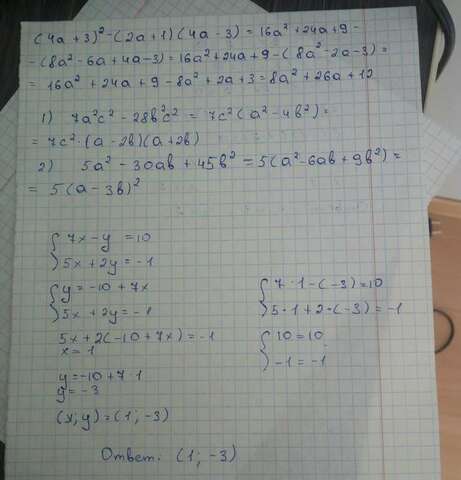 (4a + 3)² - (2a + 1)(4a - 3) = 16a² + 24a + 9 -
- (8a² - 6a + 4a - 3) = 16a² + 24a + 9 - (8a² - 2a - 3) =
= 16a² + 24a + 9 - 8a² + 2a + 3 = 8a² + 26a + 12
1) 7a²c² - 28в²c² = 7c² (a² - 4в²) =
= 7c² · (a - 2в)(a + 2в)
2) 5a² - 30aв + 45в² = 5(a² - 6aв + 9в²) =
= 5(a - 3в)²
{ 7x - y = 10
5x + 2y = -1
{ y = -10 + 7x
5x + 2y = -1
5x + 2(-10 + 7x) = -1
x = 1
y = -10 + 7 · 1
y = -3
(x; y) = (1; -3)
{ 7 · 1 - (-3) = 10
5 · 1 + 2 · (-3) = -1
{ 10 = 10
-1 = -1
Ответ: (1; -3)